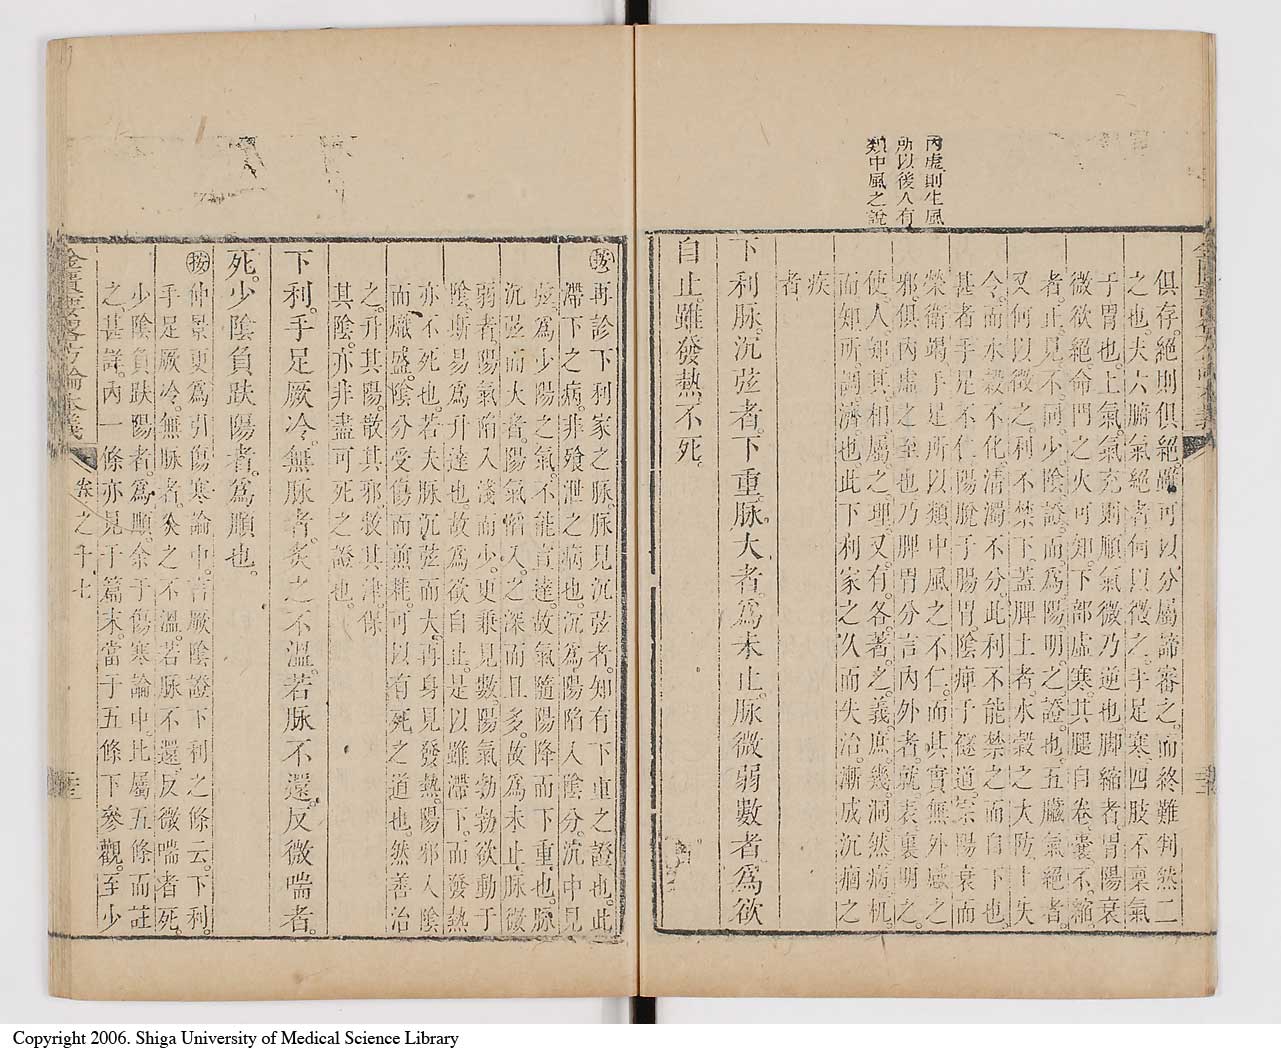 內虛則生風
所以後人有
類中風之說
俱存絕則俱絕雖可以分屬諦審之而終難判然二
之也夫六腑氣絕者何以徵之手足寒四肢不稟氣
于胃也上氣氣充則順氣微乃逆也脚縮者胃陽衰
微欲絕命門之火可知下部虛寒其腿自卷囊不縮
者止見不同少陰證而爲陽明之證也五臟氣絕者
又何以徵之利不禁下蓋脾土者水穀之大防土失
令而水穀不化清濁不分此利不能禁之而自下也
甚者手足不仁陽脫于腸胃陰痺于隧道宗陽衰而
榮衛竭手足所以類中風之不仁而其實無外感之
邪俱內虛之至也乃脾胃分言內外者就表裏明之
使人知其相屬之理又有各著之義庶幾洞然病机
而知所調濟也此下利家之久而失治漸成沉痼之
疾
者
下利脉沉弦者下重脉大者爲未止脉微弱數者爲欲
自止雖發熱不死
金匱要畧方論本義
按再診下利家之脉脉見沉弦者知有下重之證也此
滯下之病非飱泄之病也沉爲陽陷入陰分沉中見
弦爲少陽之氣不能宣達故氣隨陽降而下重也脉
沉弦而大者陽氣陷入之深而且多故爲未止脉微
弱者陽氣陷入淺而少更乘見數陽氣勃勃欲動于
陰斯易爲升達也故爲欲自止是以雖滯下而發熱
亦不死也若夫脉沉弦而大再身見發熱陽邪入陰
而熾盛陰分受傷而煎耗可以有死之道也然善治
之升其陽散其邪救其津保
其陰亦非盡可死之證也
下利手足厥冷無脉者灸之不溫若脉不還反微喘者
死少陰負趺陽者爲順也
按仲景更爲引傷寒論中言厥陰證下利之條云下利
手足厥冷無脉者灸之不溫若脉不還反微喘者死
少陰負趺陽者爲順余于傷寒論中比屬五條而註
之甚詳內一條亦見于篇末當于五條下參觀至少
金匱要畧方論本義
卷之十七
Copyright 2006. Shiga University of Medical Science Library